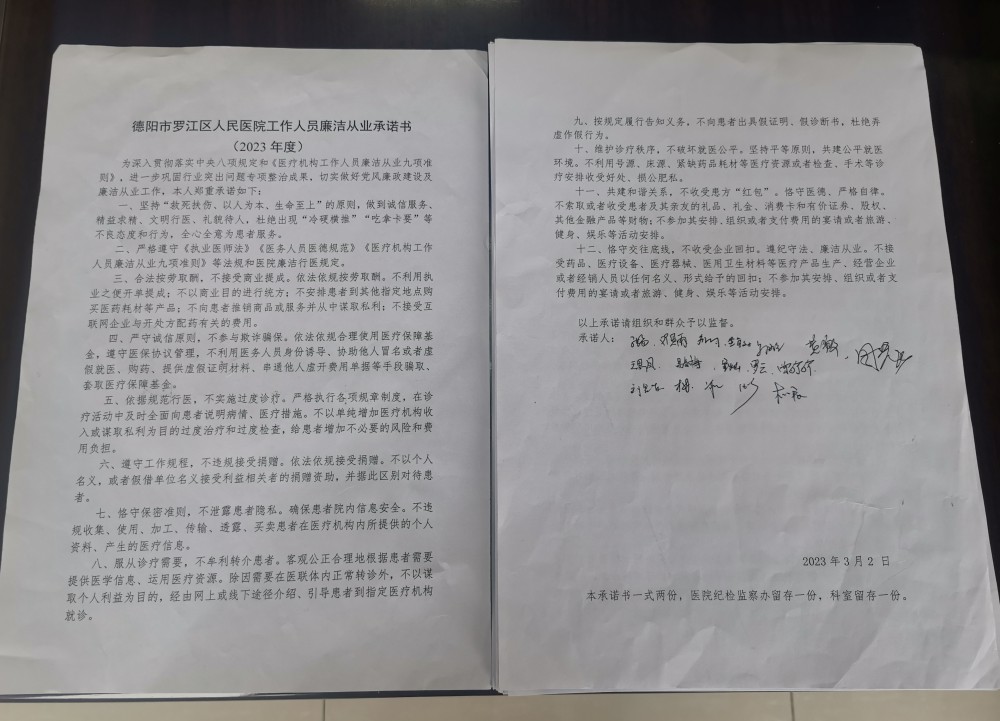 德阳市罗江区人民医院工作人员廉洁从业承诺书
（2023 年度）
为深入贯彻落实中央八项规定和《医疗机构工作人员廉洁从业九项准
则》，进一步巩固行业突出问题专项整治成果，切实做好党风廉政建设及
廉洁从业工作，本人郑重承诺如下：
一、坚持“救死扶伤、以人为本、生命至上”的原则，做到诚信服务、
精益求精、文明行医、礼貌待人，杜绝出现“冷硬横推”“吃拿卡要”等
不良态度和行为，全心全意为患者服务。
二、严格遵守《执业医师法》《医务人员医德规范》《医疗机构工作
人员廉洁从业九项准则》等法规和医院廉洁行医规定。
三、合法按劳取酬，不接受商业提成。依法依规按劳取酬。不利用执
业之便开单提成；不以商业目的进行统方；不安排患者到其他指定地点购
买医药耗材等产品；不向患者推销商品或服务并从中谋取私利；不接受互
联网企业与开处方配药有关的费用。
四、严守诚信原则，不参与欺诈骗保。依法依规合理使用医疗保障基
金，遵守医保协议管理，不利用医务人员身份诱导、协助他人冒名或者虚
假就医、购药、提供虚假证明材料、串通他人虚开费用单据等手段骗取、
套取医疗保障基金。
五、依据规范行医，不实施过度诊疗。严格执行各项规章制度，在诊
疗活动中及时全面向患者说明病情、医疗措施。不以单纯增加医疗机构收
入或谋取私利为目的过度治疗和过度检查，给患者增加不必要的风险和费
用负担。
六、遵守工作规程，不违规接受捐赠。依法依规接受捐赠。不以个人
名义，或者假借单位名义接受利益相关者的捐赠资助，并据此区别对待患
者。
七、恪守保密准则，不泄露患者隐私。确保患者院内信息安全。不违
规收集、使用、加工、传输、透露、买卖患者在医疗机构内所提供的个人
资料、产生的医疗信息。
八、服从诊疗需要，不牟利转介患者。客观公正合理地根据患者需要
提供医学信息、运用医疗资源。除因需要在医联体内正常转诊外，不以谋
取个人利益为目的，经由网上或线下途径介绍、引导患者到指定医疗机构
就诊。
九、按规定履行告知义务，不向患者出具假证明、假诊断书，杜绝弄
虚作假行为。
十、维护诊疗秩序，不破坏就医公平。坚持平等原则，共建公平就医
环境。不利用号源、床源、紧缺药品耗材等医疗资源或者检查、手术等诊
疗安排收受好处、损公肥私。
十一、共建和谐关系，不收受患方“红包”。恪守医德、严格自律。
不索取或者收受患者及其亲友的礼品、礼金、消费卡和有价证券、股权、
其他金融产品等财物；不参加其安排、组织或者支付费用的宴请或者旅游、
健身、娱乐等活动安排。
十二、恪守交往底线，不收受企业回扣。遵纪守法、廉洁从业。不接
受药品、医疗设备、医疗器械、医用卫生材料等医疗产品生产、经营企业
或者经销人员以任何名义、形式给予的回扣；不参加其安排、组织或者支
付费用的宴请或者旅游、健身、娱乐等活动安排。
以上承诺请组织和群众予以监督。
承诺人：
2023 年 3 月 2 日
本承诺书一式两份，医院纪检监察办留存一份，科室留存一份。